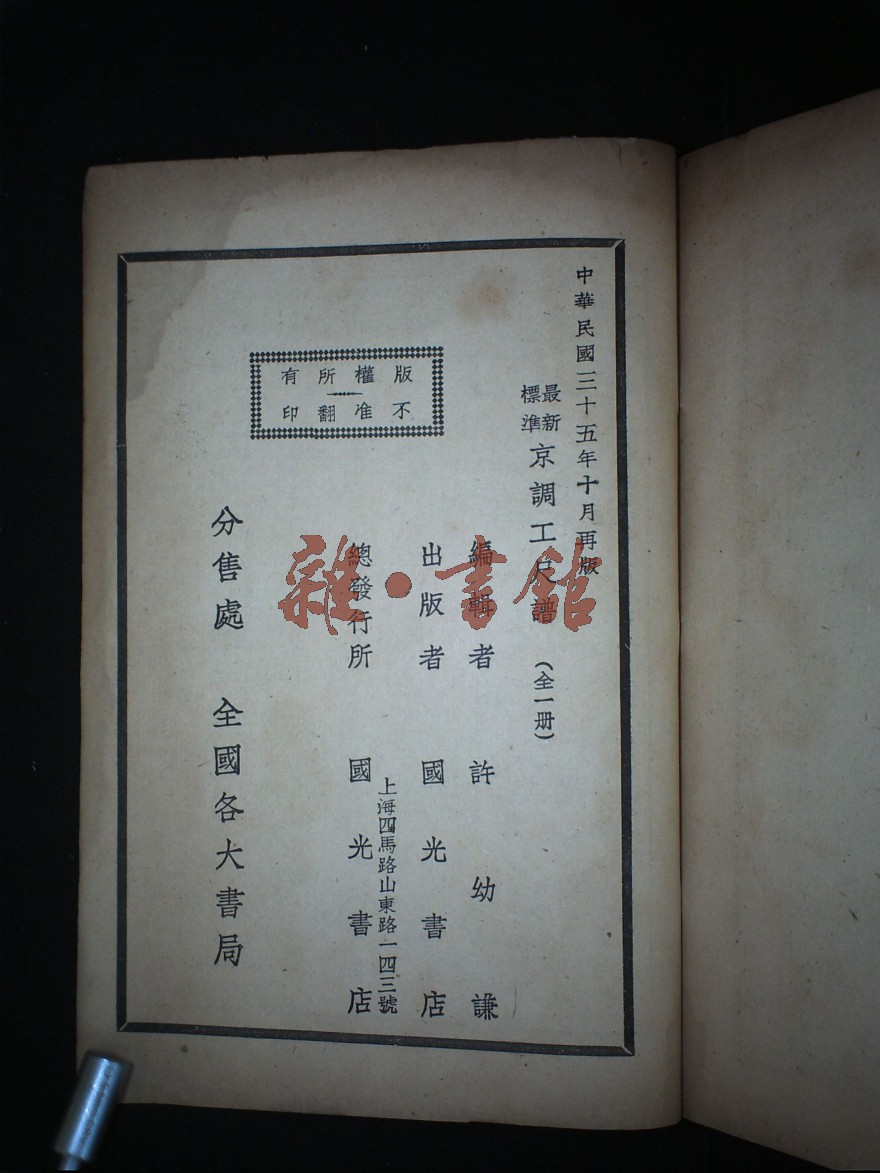 中華民國三十五年十月再版
最新標準京調工尺譜（全一册）
編輯者 許幼謙
出版者 國光書店
上海四馬路山東路一四三號
總發行所 國光書店
分售處 全國各大書局
版權所有
不准翻印
雜·書館